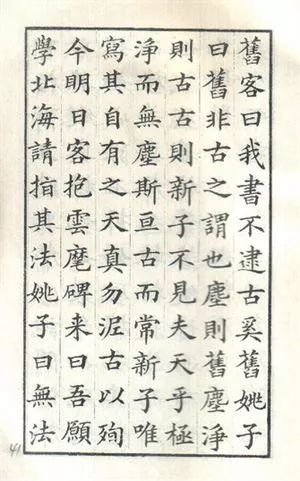 舊客曰我書不逮古奚舊姚子
曰舊非古之謂也塵則舊塵淨
則古古則新子不見夫天乎極
淨而無塵斯亘古而常新子唯
寫其自有之天真勿泥古以殉
今明日客抱雲麾碑来曰吾願
學北海請指其法姚子曰無法
41